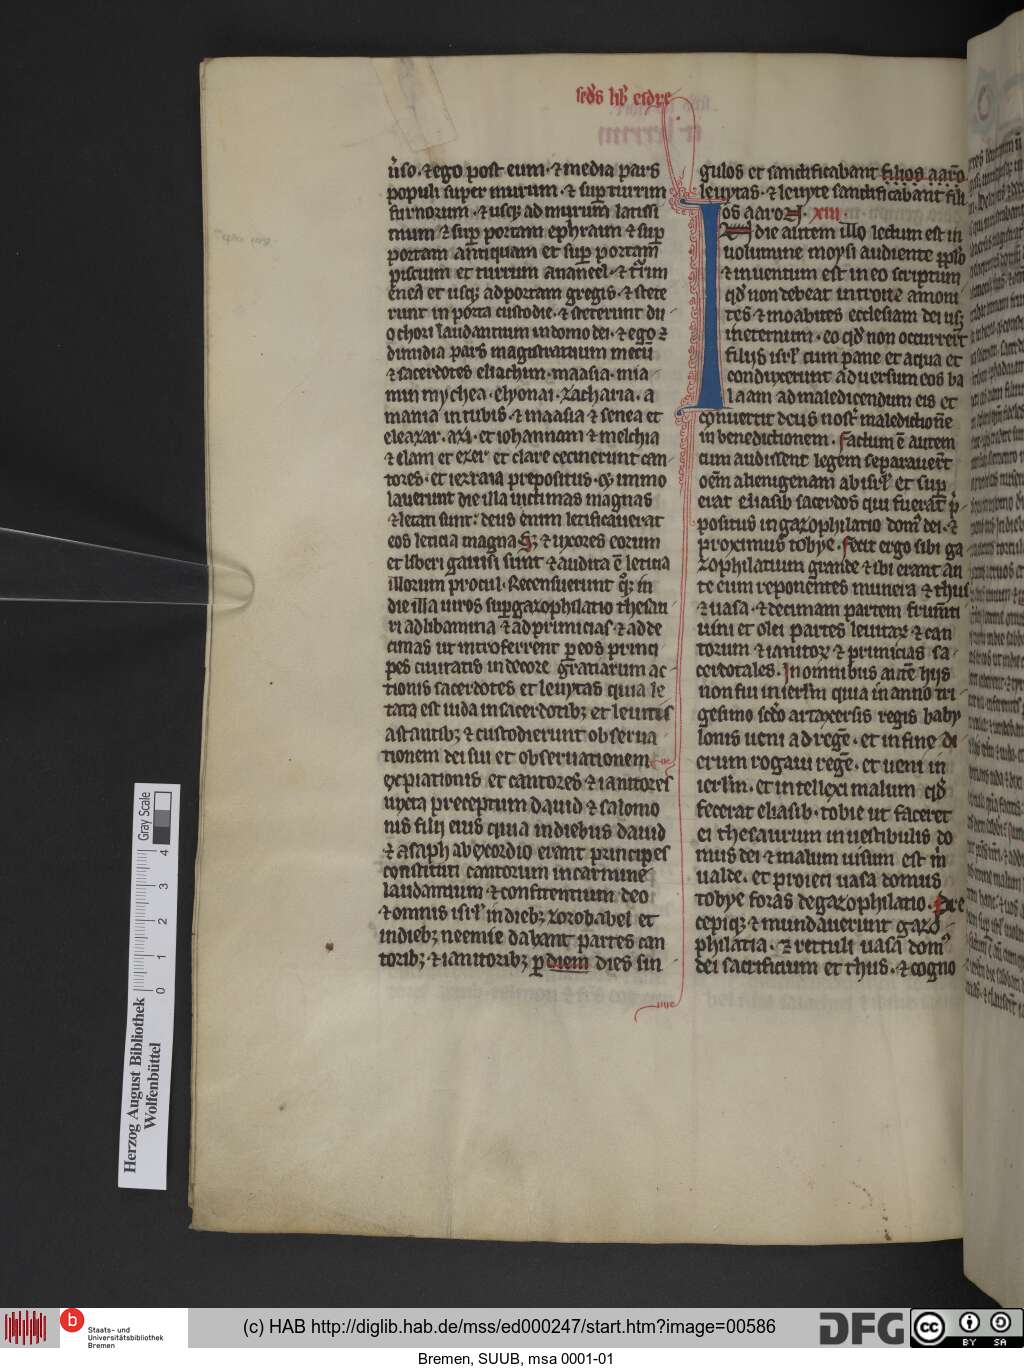 scd's lib' esdre
ůso · ⁊ ego post eum · ⁊ media pars
populi super murum · ⁊ sup turrim
furnorum · ⁊ usq; ad murum latissi
mum ⁊ sup portam ephraim ⁊ sup
portam antiquam et sup portam
piscium et turrim ananeel · ⁊ t'rim
emea et usq; ad portam gregis · ⁊ stete
runt in porta custodie · ⁊ steterunt du
o chori laudantium in domo dei · ⁊ ego ⁊
dimidia pars magistratuum mecū
⁊ sacerdotes eliachim · maasia · mia
min mychea · elyonai · zacharia · a
mania in tubis · ⁊ maasia ⁊ senea et
eleazar · azi · et iohannam ⁊ melchia
⁊ elam et ezer et clare cecinerunt can
tores · et iezraia prepositus · et immo
lauerunt die illa uictimas magnas
⁊ letati sunt: deus enim letificauerat
eos leticia magna S; ⁊ uxores eorum
et liberi gauisi sunt ⁊ audita ē leticia
illorum procul · Recensuerunt q; in
die illa uiros sup gazophilatio thesau
ri ad libamina ⁊ ad primicias ⁊ ad de
cimas ut introferrent p eos princi
pes ciuitatis in decore gratiarum ac
tionis sacerdotes et leuytas quia le
tata est iuda in sacerdotib; et leuitis
astantib; ⁊ custodierunt obserua
tionem dei sui et obseruationem
expiationis et cantores ⁊ ianitores
iuxta preceptum dauid ⁊ salomo
nis filij eius quia in diebus dauid
⁊ asaph ab exordio erant principes
constituti cantorum in carmine
laudantium ⁊ confitentium deo
⁊ omnis isrl' in dieb; zorobabel et
in dieb; neemie dabant partes can
torib; ⁊ ianitorib; p diem dies sin
gulos et sanctificabant filios aarō
leuytas · ⁊ leuyte sanctificabant fili
os aaron · XIII ·
In die autem illo lectum est in
uolumine moysi audiente pplo
⁊ inuentum est in eo scriptum
qd' non debeat introire amoni
tes ⁊ moabites ecclesiam dei usq;
in eternum · eo qd' non occurrert
filijs isrl' cum pane et aqua et
conduxerunt aduersum eos ba
laam ad maledicendum eis et
conuertit deus nost' maledictionē
in benedictionem · Factum ē autem
cum audissent legem separauer't
oēm alienigenam ab isrl' et sup
erat eliasib sacerdos qui fuerat p'
positus in gazophilatio dom' dei · ⁊
proximus tobye · fecit ergo sibi ga
zophilatium grande ⁊ ibi erant an
te eum reponentes munera ⁊ thus
⁊ uasa · ⁊ decimam partem frumti
uini et olei partes leuitaꝝ ⁊ can
torum ⁊ ianitoꝝ ⁊ primicias sa
cerdotales · In omnibus autē hijs
non fui in ierlm quia in anno tri
gesimo scdo artaxersis regis baby
lonis ueni ad regē · et in fine di
erum rogaui regē · et ueni in
ierlm · et intellexi malum qd'
fecerat eliasib · tobie ut faceret
ei thesaurum in uestibulis do
mus dei ⁊ malum uisum est m'
ualde · et proieci uasa domus
tobye foras de gazophilatio · Pre
cepiq; ⁊ mundauerunt gazo
philatia · ⁊ rettuli uasa dom'
dei sacrificium et thus · ⁊ cogno
Gray Scale
0 1 2 3 4
Herzog August Bibliothek
Wolfenbüttel
b
Staats- und
Universitätsbibliothek
Bremen
(c) HAB http://diglib.hab.de/mss/ed000247/start.htm?image=00586
DFG
cc
BY SA
Bremen, SUUB, msa 0001-01